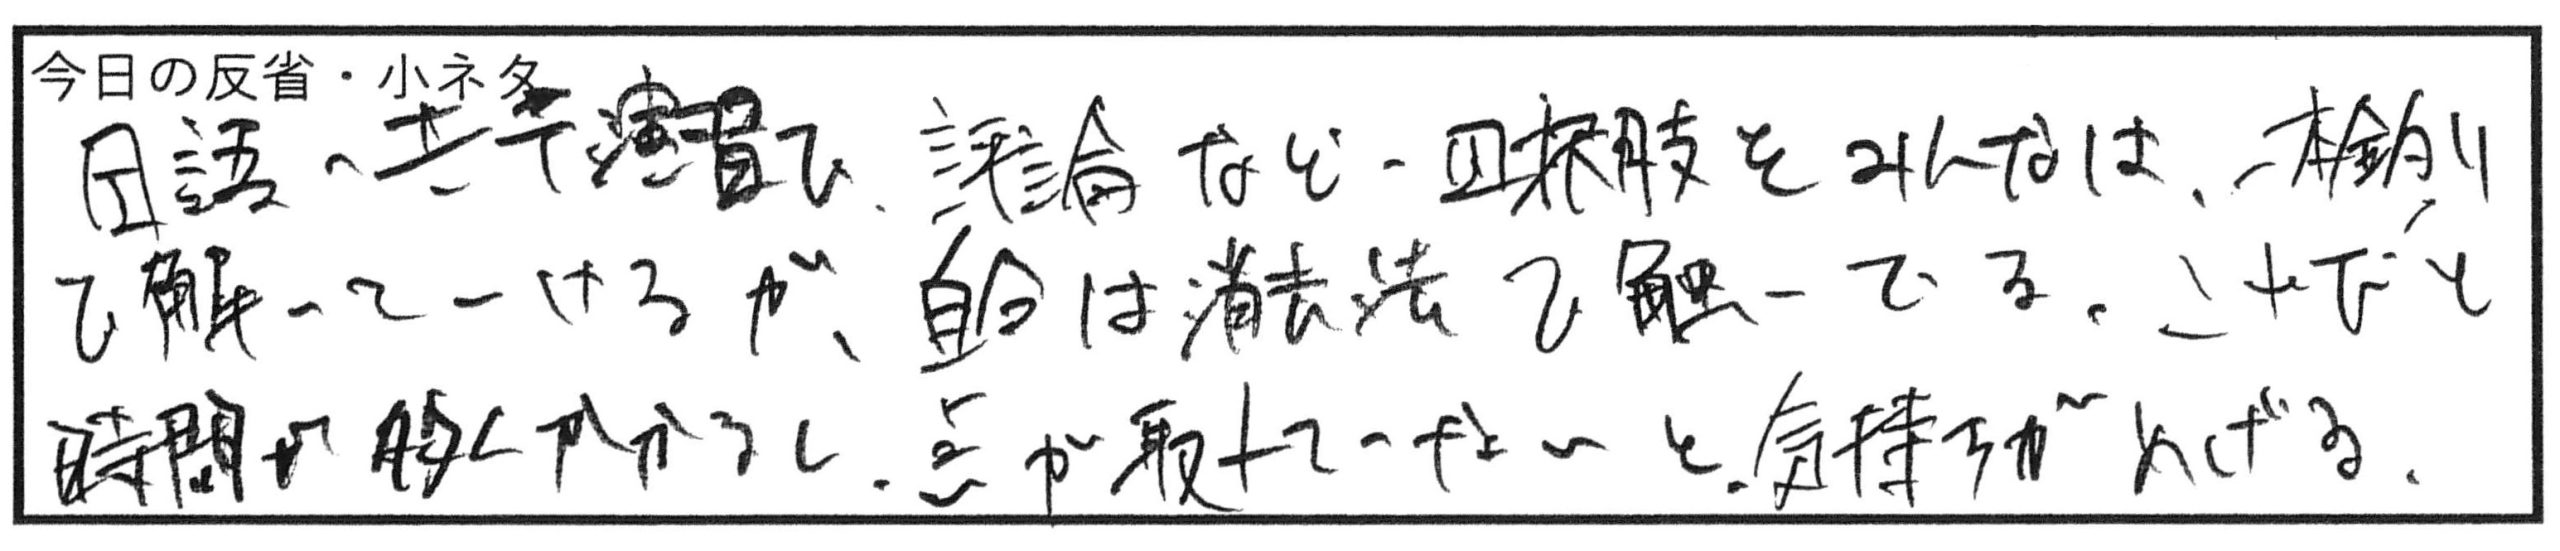 今日の反省・小ネタ
国語の共テ演習で、評論などの四択肢をみんなは、一本釣り
で解いていけるが、自分は消去法で解いてる。これだと
時間が多くかかるし、点が取れていないと、気持ちがめげる。